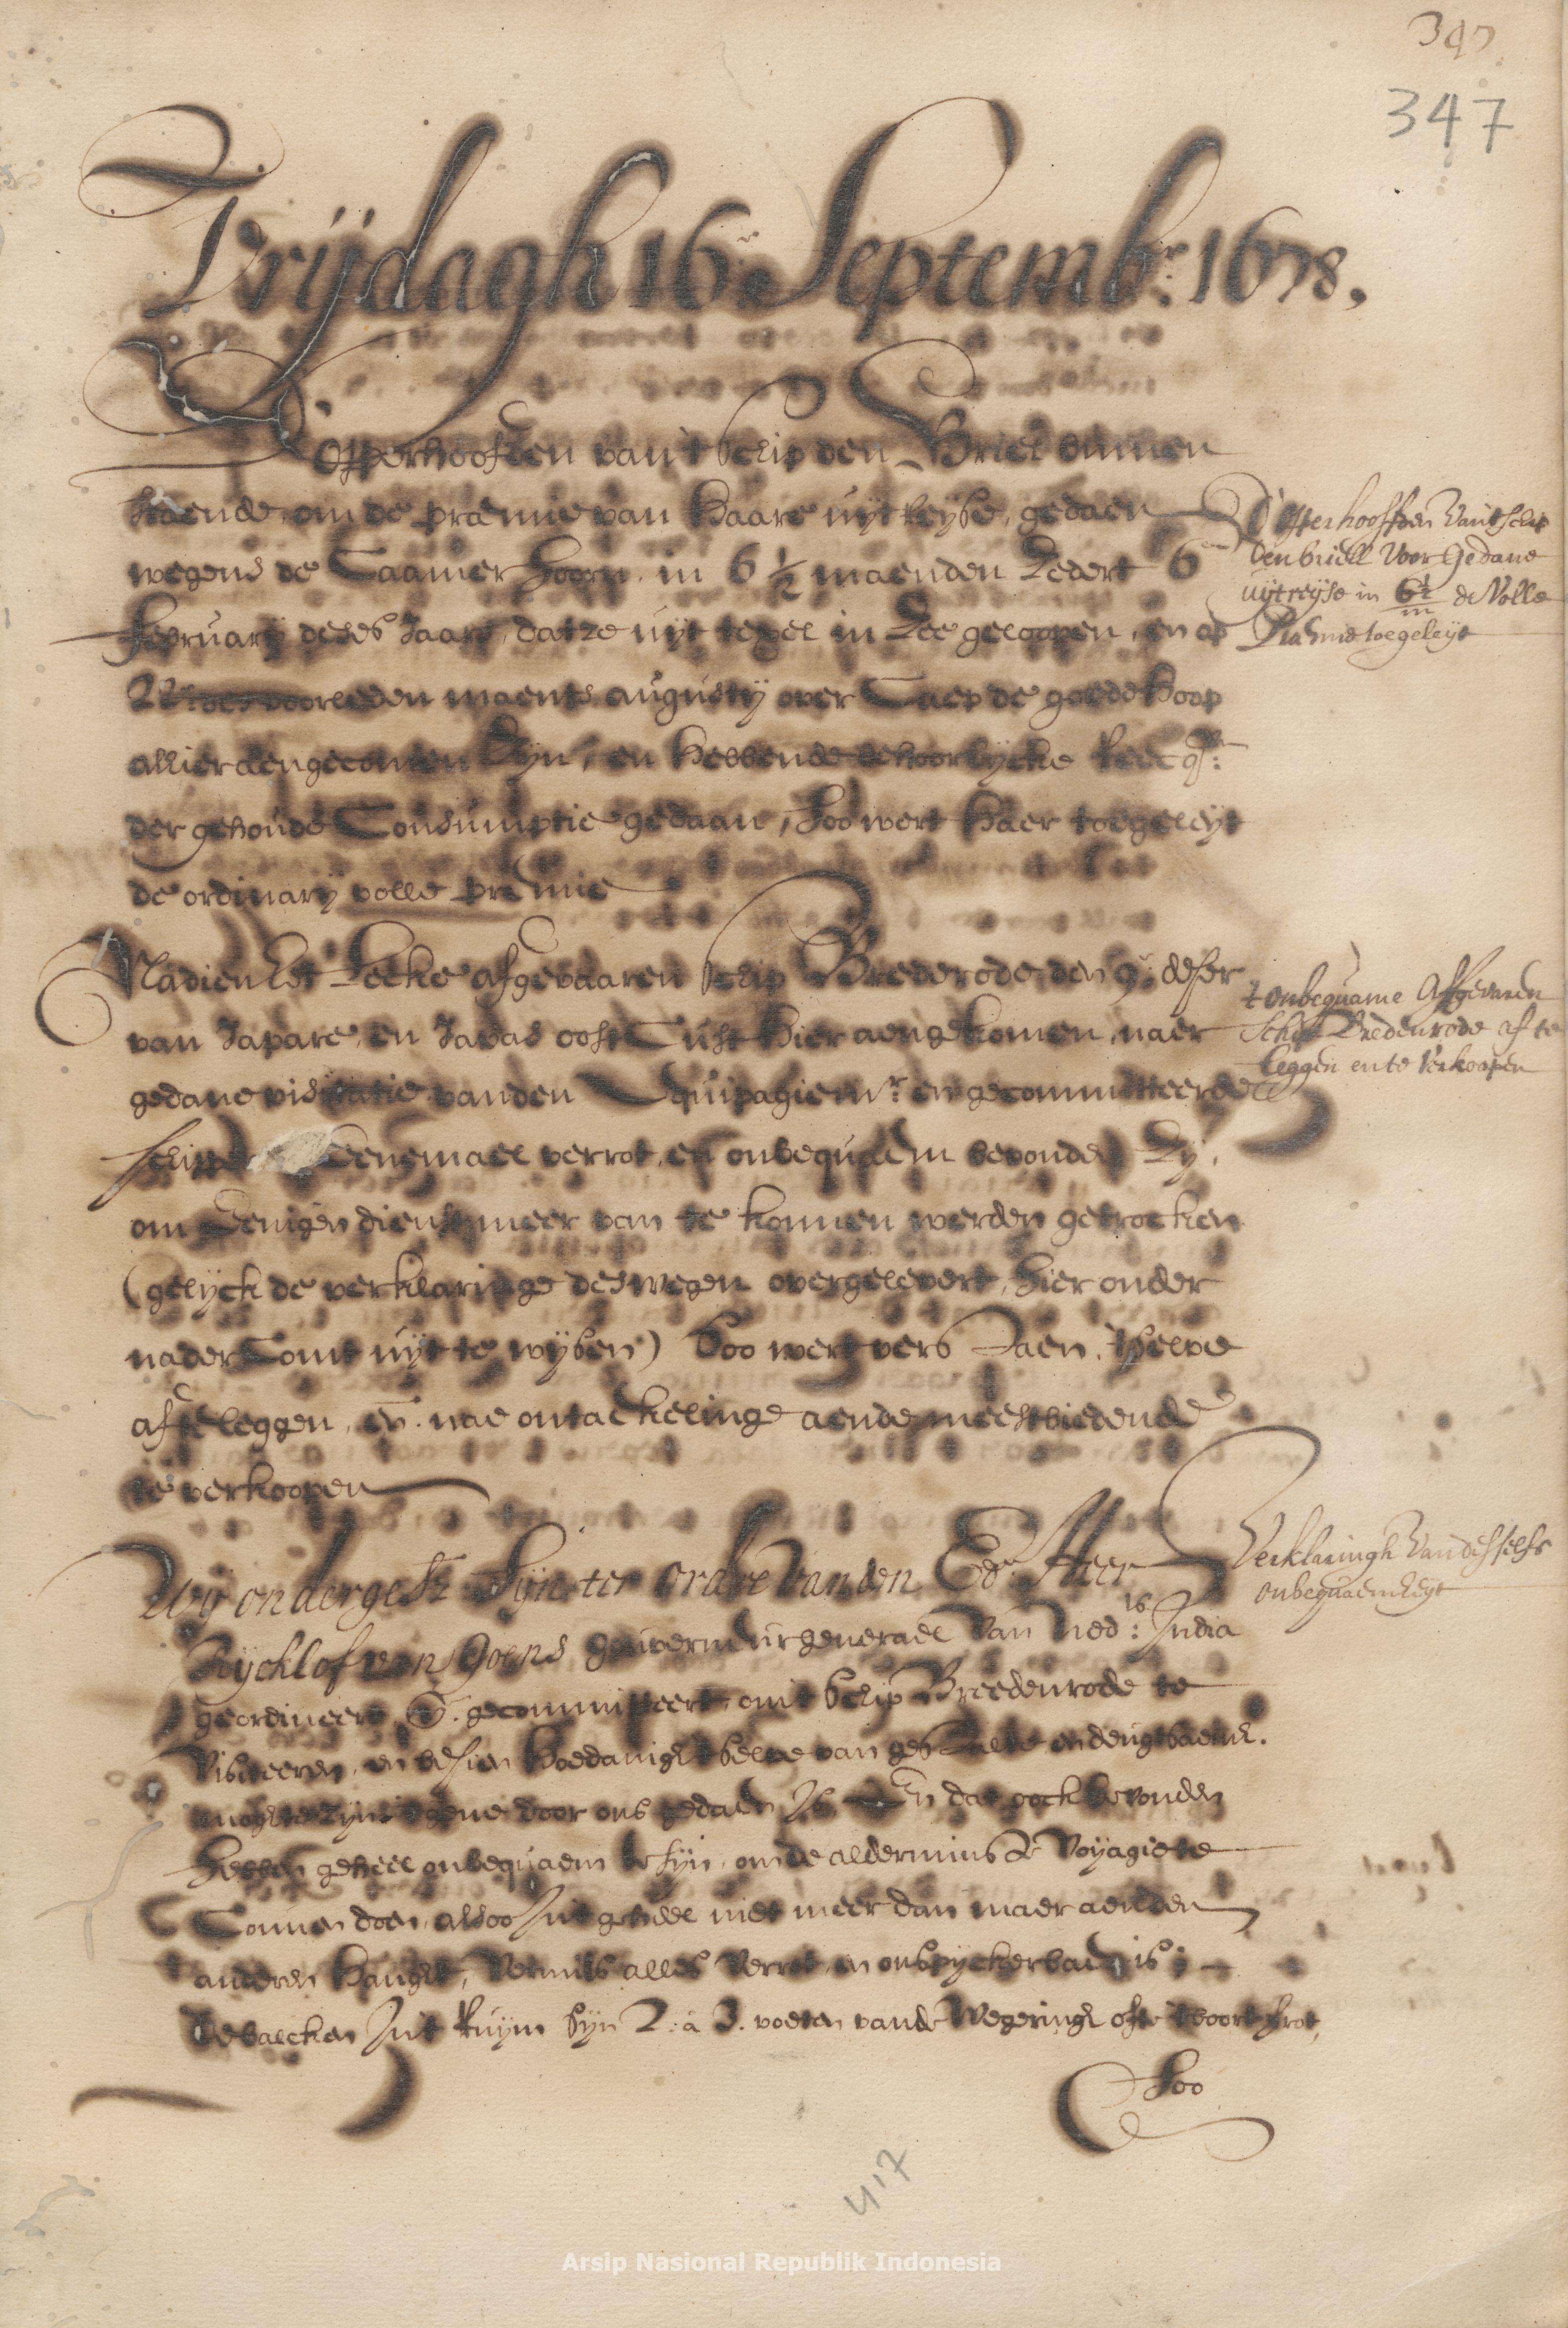 347
347
Vrijdagh 16 Septembr: 1678.
D' Opperhoofden van 't schip den Briel binnen
staende, om de praemie van haare uijtreijse, gedaen
wegens de Caamer Hoorn, in 6 1/2 maenden zedert 6en
february deses Jaars, dat ze uijt texel in Zee geloopen, en op
22: des voorleden maents augustij over Caep de goede hoop
alhier aengecomen zijn, en hebbende behoorlijcke
der gehoude Consumptie gedaan, soo wert haer toegeleijt
de ordinarij volle praemie
D' Opperhoofden van 't schip
den briell voor gedane
uijtreijse in 6 1/2 m de volle
Praemie toegeleijt
Nadien het Lecke afgevaaren schip Brederode, den 9: deser
van Japare, en Javas oost Cust hier aengekomen, naer
gedane visitatie vanden Equipagiemr: en gecommitteerde
schippers Eenemael verrot, en onbequaem bevonden zij,
om Eenigen dienst meer van te konnen werden getrocken
(gelijck de verklaringe deswegen overgelevert, hier onder
nader Comt uijt te wijsen) Soo wert verstaen, 't selve
af te leggen, en nae ontackelinge aende meestbiedende
te verkoopen
t onbequame Affgevaren
Schip Bredenrode af te
leggen en te verkoopen
Wij ondergesz: Sijn ter ordre van den Edn. Heer
Rijcklof van Goens gouverneur generael van Ned:is India
geordineert & gecommitteert, om 't schip Breedenrode te
visiteeren, en besien hoedanigh 't selve van gestalte en deugtsaemh.
mochte zijn, 't gene door ons gedaen is, En dat oock bevonden
hebben geheel onbequaem te sijn, om de alderminste voijagie te
Connen doen, alsoo int geheel niet meer dan maer aen den
anderen hanght, vermits alles verrot en onspijckerbaer is;
de balcken int Ruijm sijn 2: à 3. voeten vande Wegeringh ofte 't boort verrot,
Verklaringh van desselfs
onbequaemheijt
Soo
417
Arsip Nasional Republik Indonesia